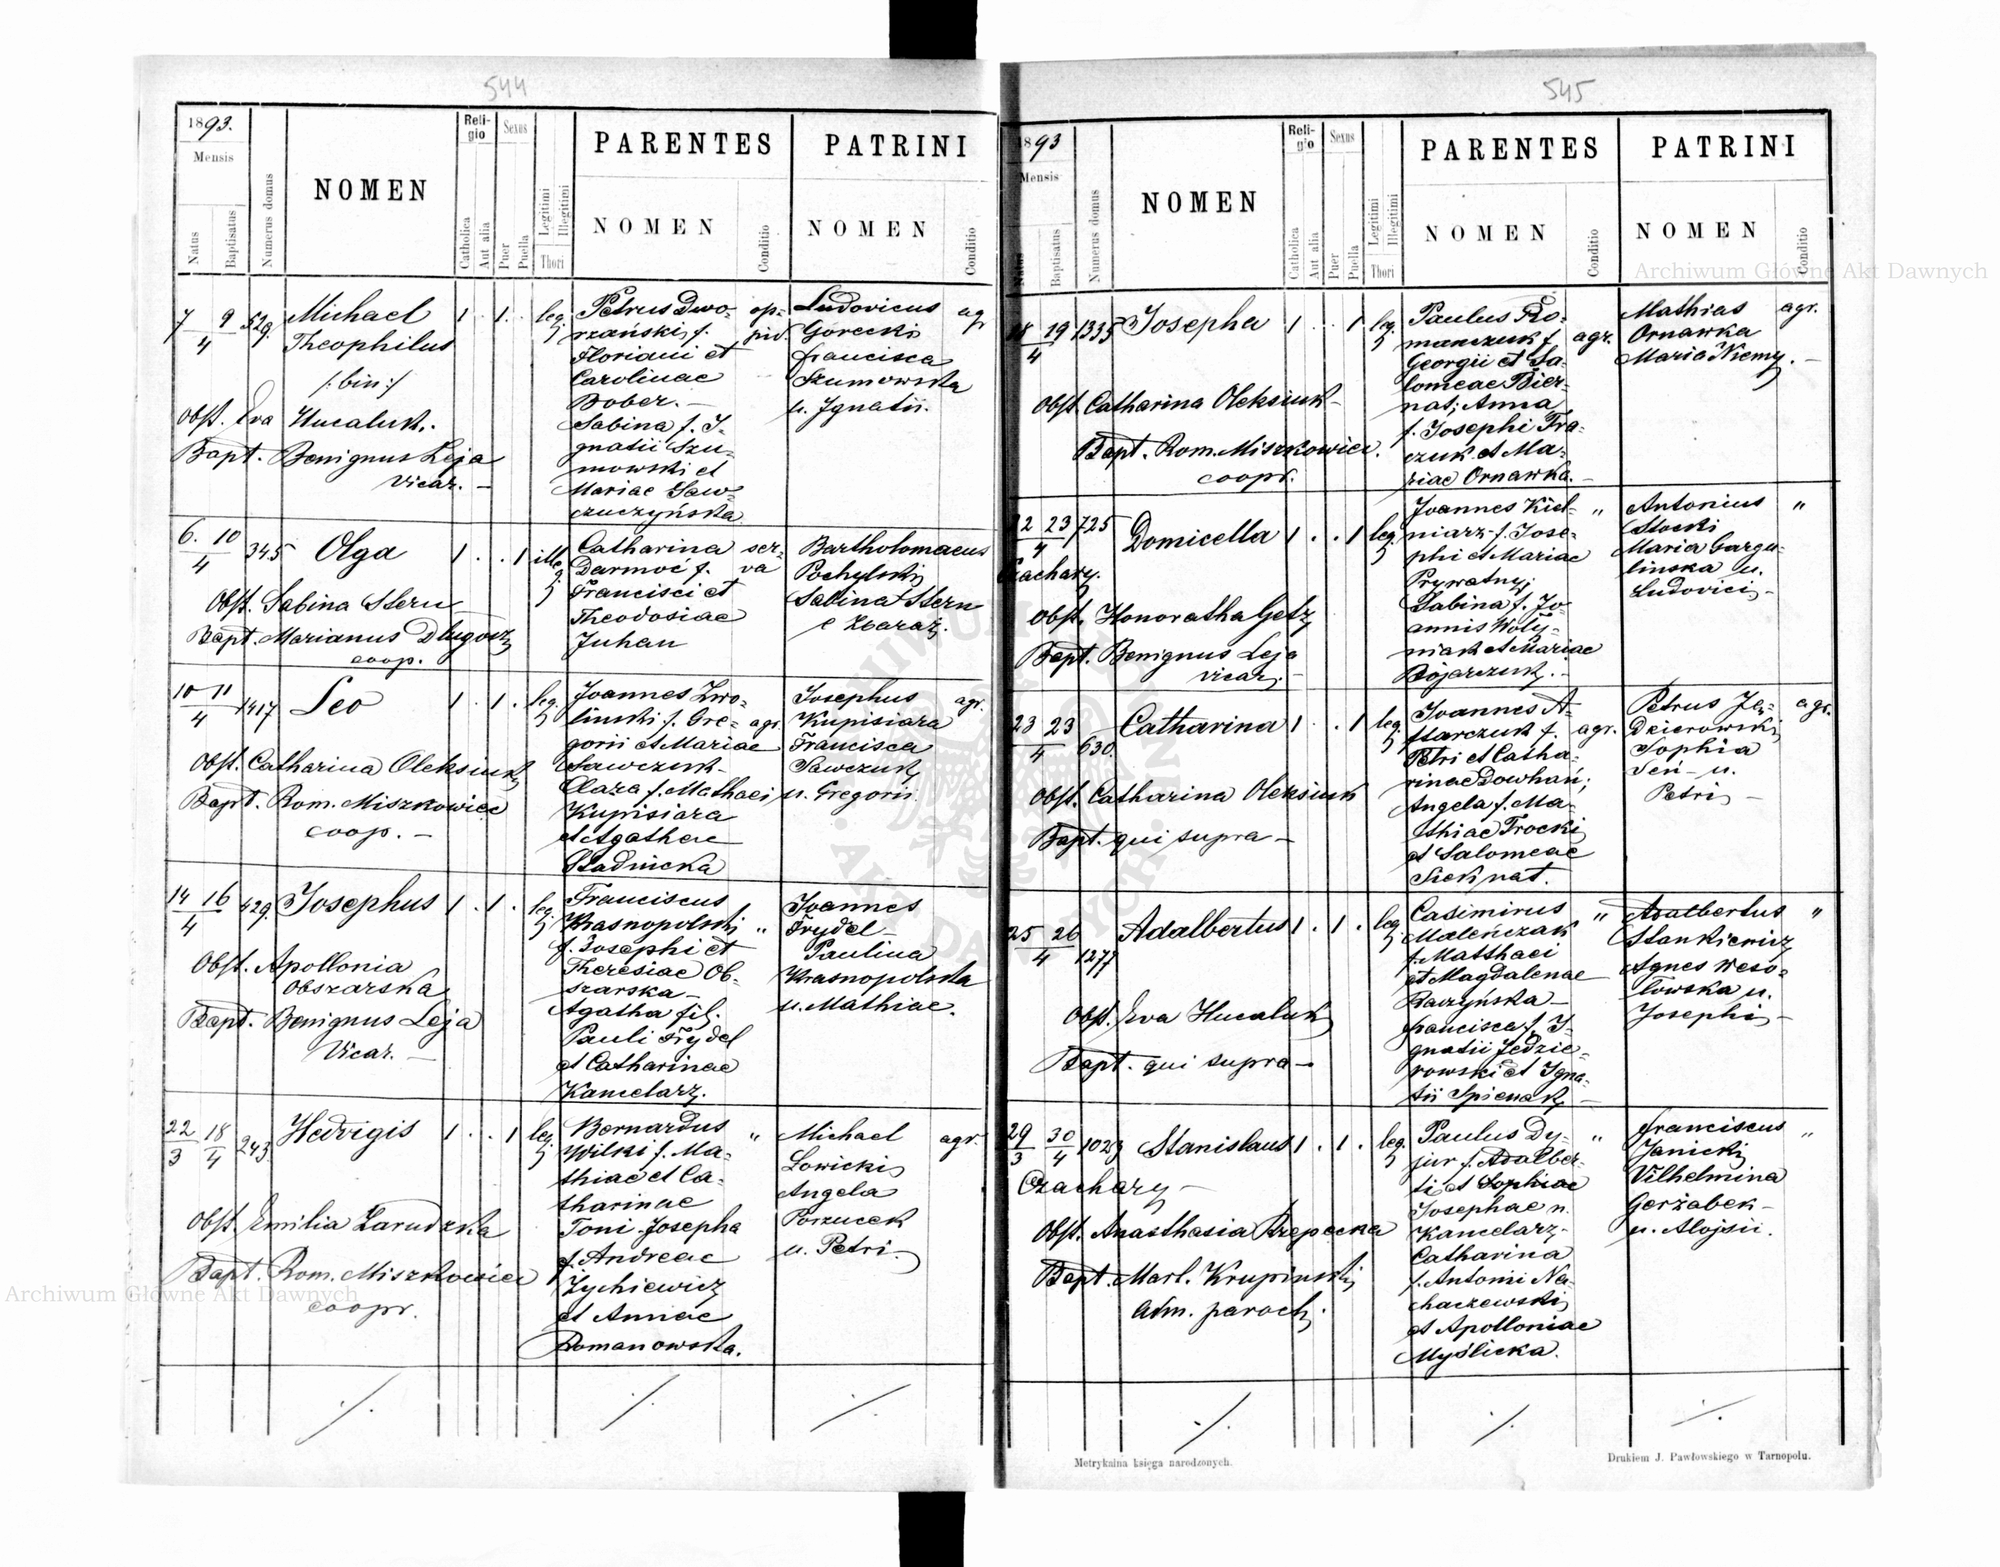 544
1893.
Mensis
Natus
Baptisatus
Numerus domus
NOMEN
Reli-
gio
Catholica
Aut alia
Sexus
Puer
Puella
Legitimi
Illegitimi
Thori
PARENTES
NOMEN
Conditio
PATRINI
NOMEN
Conditio
7 9 529 Michael 1 . 1 . leg.
4
Theophilus
/:bin:/
Obst. Eva Hucaluk.
Bapt. Benignus Leja
vicar. —
Petrus Dwo- op-
rzański f. pid.
Floriani et
Carolinae
Bober. —
Sabina f. I-
gnatii Szu-
mowski et
Mariae Saw-
czuczyńska
Ludovicus agr
Gorecki
Francisca
Szumowska
u. Ignatii.
6. 10 345 Olga 1 . . 1 ille
4
Obst. Sabina Stern
Bapt. Marianus Długosz
coop.
Catharina ser-
Darmoć f. va
Francisci et
Theodosiae
Juhan
Bartholomaeus
Pochylski
Sabina Stern
e Zbaraż.
10 11 1417 Leo 1 . 1 . leg.
4
Obst. Catharina Oleksiuk
Bapt. Rom. Miszkowicz
coop. —
Joannes Zwo-
linski f. Gre- agr.
gorii et Mariae
Sawczuk
Clara f. Mathaei
Kupisiara
et Agathae
Stadnicka
Josephus agr.
Kupisiara
Francisca
Sawczuk
u. Gregorii
14 16 429 Josephus 1 . 1 . leg.
4
Obst. Apollonia
Obszarska
Bapt. Benignus Leja
Vicar. —
Franciscus
Krasnopolski "
f. Josephi et
Theresiae Ob-
szarska —
Agatha fil.
Pauli Frydel
et Catharinae
Kancelarz.
Joannes
Frydel
Paulina
Krasnopolska
u. Mathiae.
22 18 243 Hedvigis 1 . . 1 leg.
3 4
Obst. Emilia Zarudzka
Bapt. Rom. Miszkowicz
coopr.
Bernardus "
Wilski f. Ma-
thiae et Ca-
tharinae
Toni Josepha
f. Andreae
Zychiewicz
et Annae
Romanowska.
Michael agr.
Lowicki
Angela
Porzucek
u. Petri.
545
1893
Mensis
Natus
Baptisatus
Numerus domus
NOMEN
Reli-
gio
Catholica
Aut alia
Sexus
Puer
Puella
Legitimi
Illegitimi
Thori
PARENTES
NOMEN
Conditio
PATRINI
NOMEN
Conditio
18 19 1335 Josepha 1 . . 1 leg.
4
Obst. Catharina Oleksiuk
Bapt. Rom. Miszkowicz.
coopr.
Paulus Ro-
manczuk f. agr.
Georgii et Sa-
lomeae Bier-
nat; Anna
f. Josephi Tra-
czuk et Ma-
riae Ornawka.
Mathias agr.
Ornawka
Maria Niemy. —
22 23 725 Domicella 1 . . 1 leg.
4
Czachary.
Obst. Honoratha Getz
Bapt. Benignus Leja
vicar.
Joannes Kiel- "
niarz f. Jose-
phi et Mariae
Prywatny;
Sabina f. Jo-
annis Woły-
niak et Mariae
Bojarczuk. —
Antonius "
Stocki
Maria Gargu-
linska u.
Ludovici. —
23 23 630 Catharina 1 . . 1 leg.
4
Obst. Catharina Oleksiuk
Bapt. qui supra —
Joannes A-
ftarczuk f. agr.
Petri et Catha-
rinae Dowhań;
Angela f. Ma-
thiae Trocki
et Salomeae
Siek nat.
Petrus Je- agr.
dzierowski
Sophia
Seń u.
Petri —
25 26 1277 Adalbertus 1 . 1 . leg.
4
Obst. Eva Hucaluk
Bapt. qui supra —
Casimirus "
Maleńczak
f. Matthaei
et Magdalenae
Raczyńska —
Francisca f. I-
gnatii Jedzie-
rowski et Igna-
tii Spiewak —
Adalbertus "
Stankiewicz
Agnes Weso-
łowska u.
Josephi —
29 30 1023 Stanislaus 1 . 1 . leg.
3 4
Czachary —
Obst. Anasthasia Rzepecka
Bapt. Marl. Krupinski
adm. paroch.
Paulus Dy- "
jur f. Adalber-
ti et Sophiae
Josephae n.
Kancelarz
Catharina
f. Antonii Na-
chaczewski
et Apolloniae
Myślicka.
Franciscus "
Janicki
Vilhelmina
Gerżabek
u. Alojsii.
Metrykalna księga narodzonych.
Drukiem J. Pawłowskiego w Tarnopolu.
Archiwum Główne Akt Dawnych
Archiwum Główne Akt Dawnych